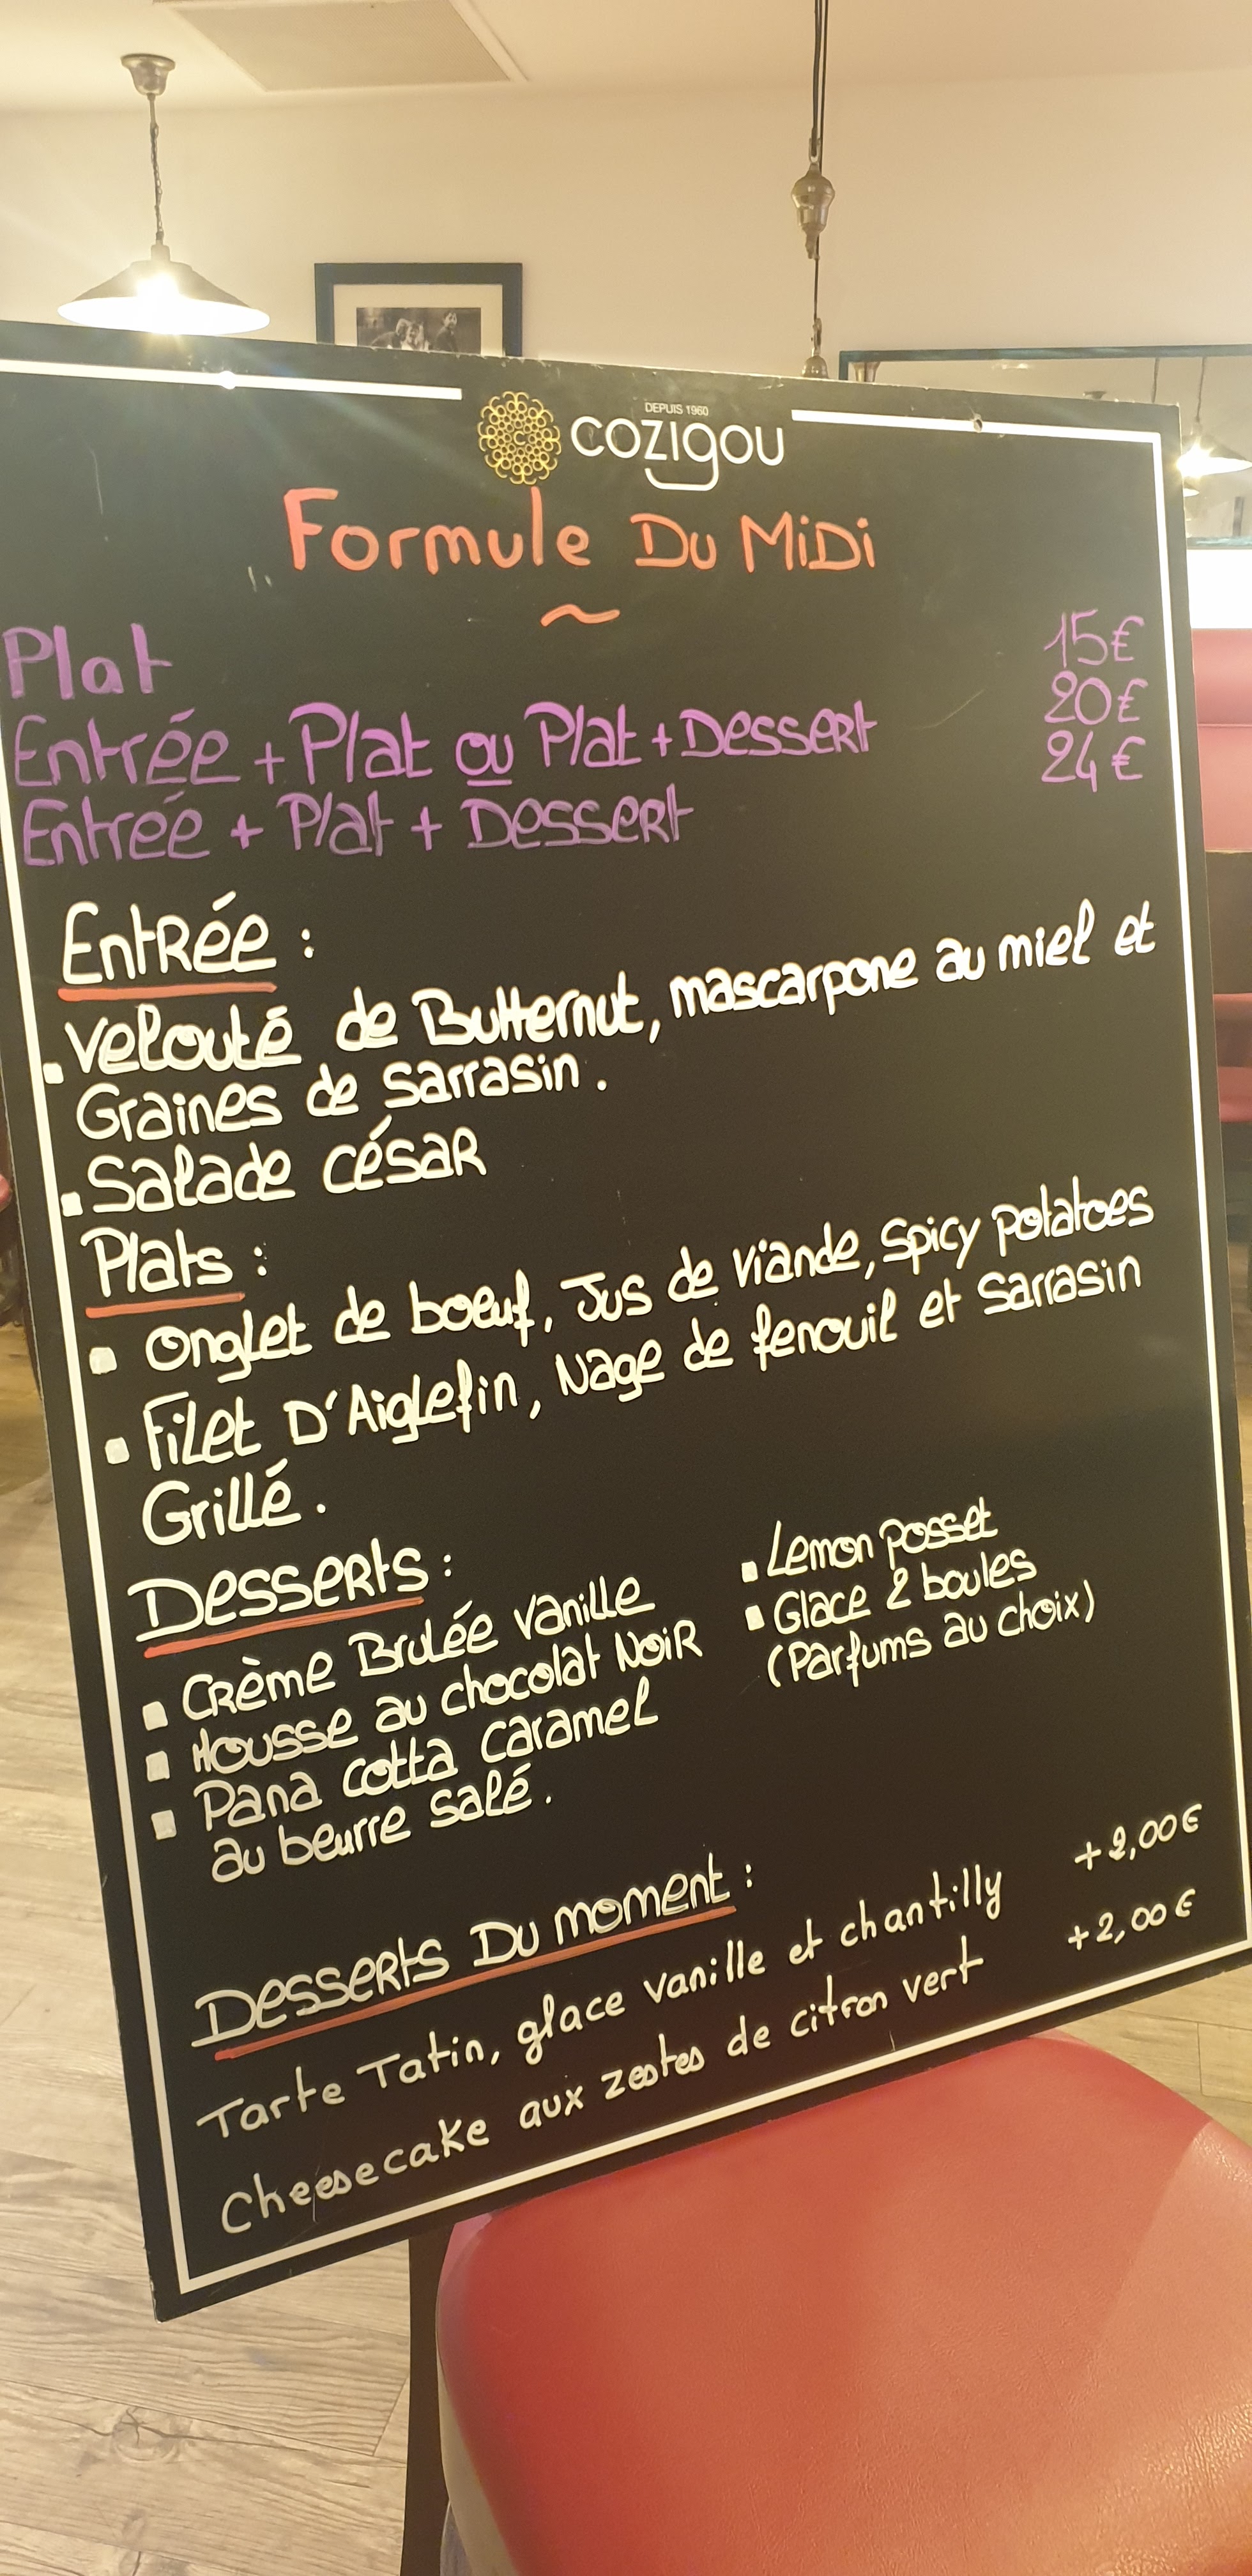 DEPUIS 1960
COZIGOU
Formule Du Midi
~
Plat 15€
Entrée + Plat ou Plat + Dessert 20€
Entrée + Plat + Dessert 24€
Entrée :
Velouté de Butternut, mascarpone au miel et
Graines de Sarrasin.
Salade César
Plats :
Onglet de boeuf, Jus de viande, Spicy potatoes
Filet D'Aiglefin, Nage de fenouil et Sarrasin
Grillé.
Desserts :
Crème Brulée vanille
Mousse au chocolat Noir
Pana cotta caramel
au beurre salé.
Lemon posset
Glace 2 boules
(Parfums au choix)
Desserts Du moment :
Tarte Tatin, glace vanille et chantilly +2,00€
Cheesecake aux zestes de citron vert +2,00€